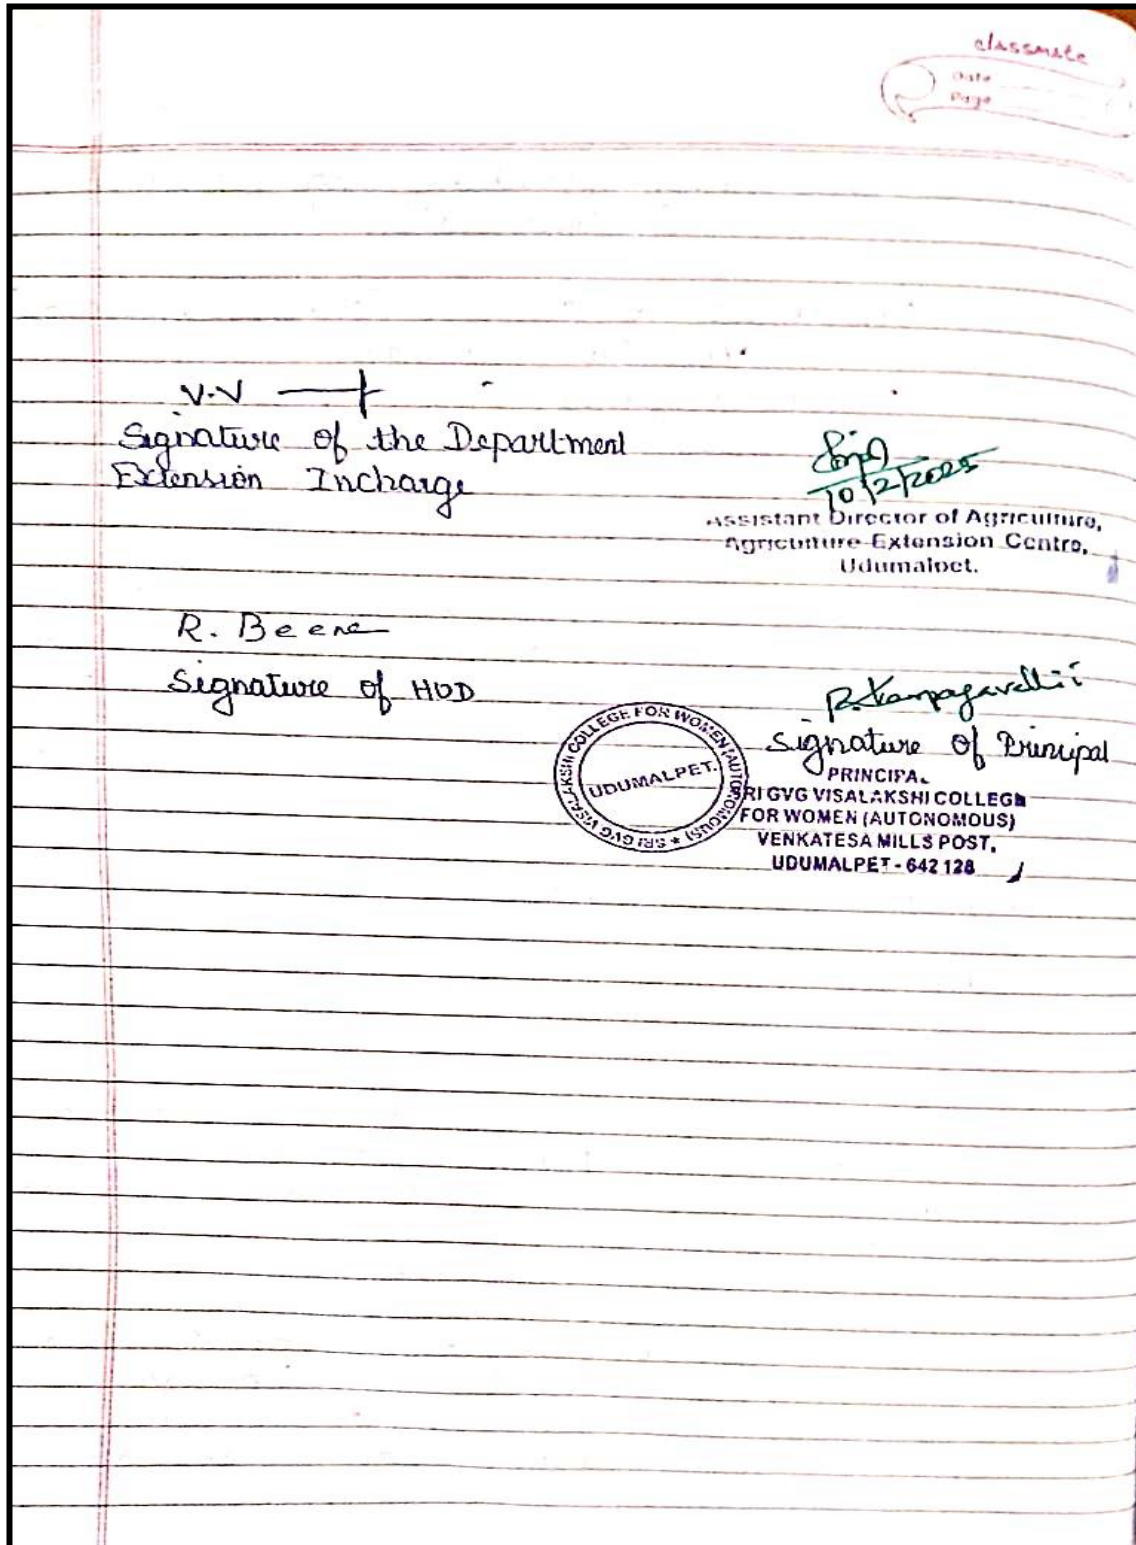 classmate
Date
Page
V.V
Signature of the Department
Extension Incharge
10/2/2025
Assistant Director of Agriculture,
Agriculture Extension Centre,
Udumalpet.
R. Beena
Signature of HOD
R. Karpagavalli
Signature of Principal
SRI GVG VISALAKSHI COLLEGE FOR WOMEN (AUTONOMOUS) *
UDUMALPET.
PRINCIPA
SRI GVG VISALAKSHI COLLEGE
FOR WOMEN (AUTONOMOUS)
VENKATESA MILLS POST,
UDUMALPET - 642 128